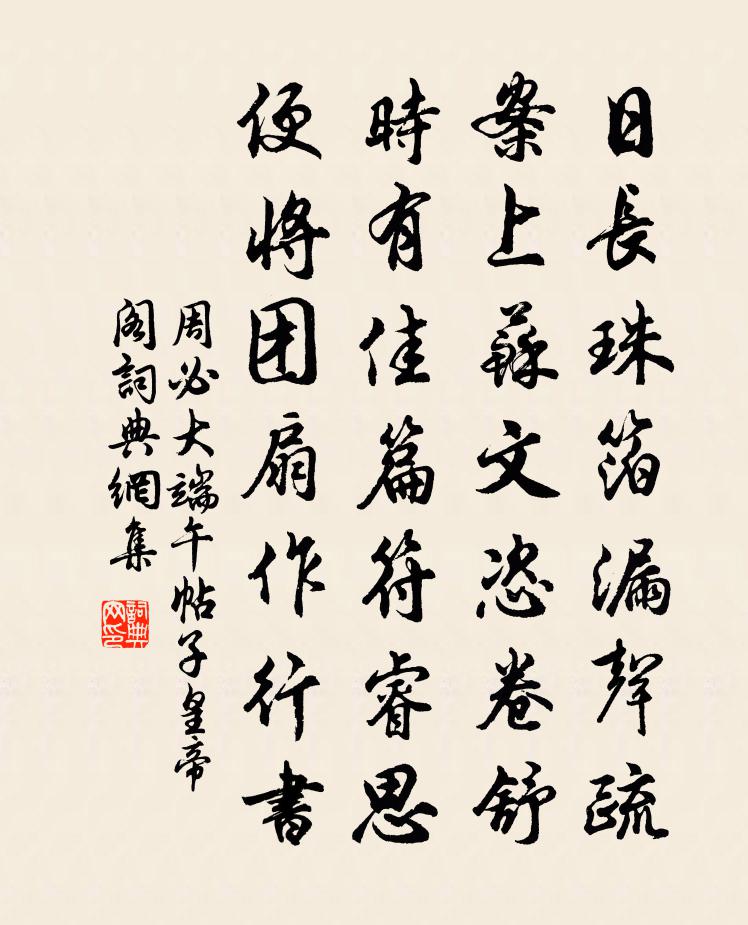 日長珠箔漏聲疏
案上蘇文恣卷舒
時有佳篇符睿思
便将团扇作行書
周必大端午帖子皇帝
阁詞典網集
詞典
网印